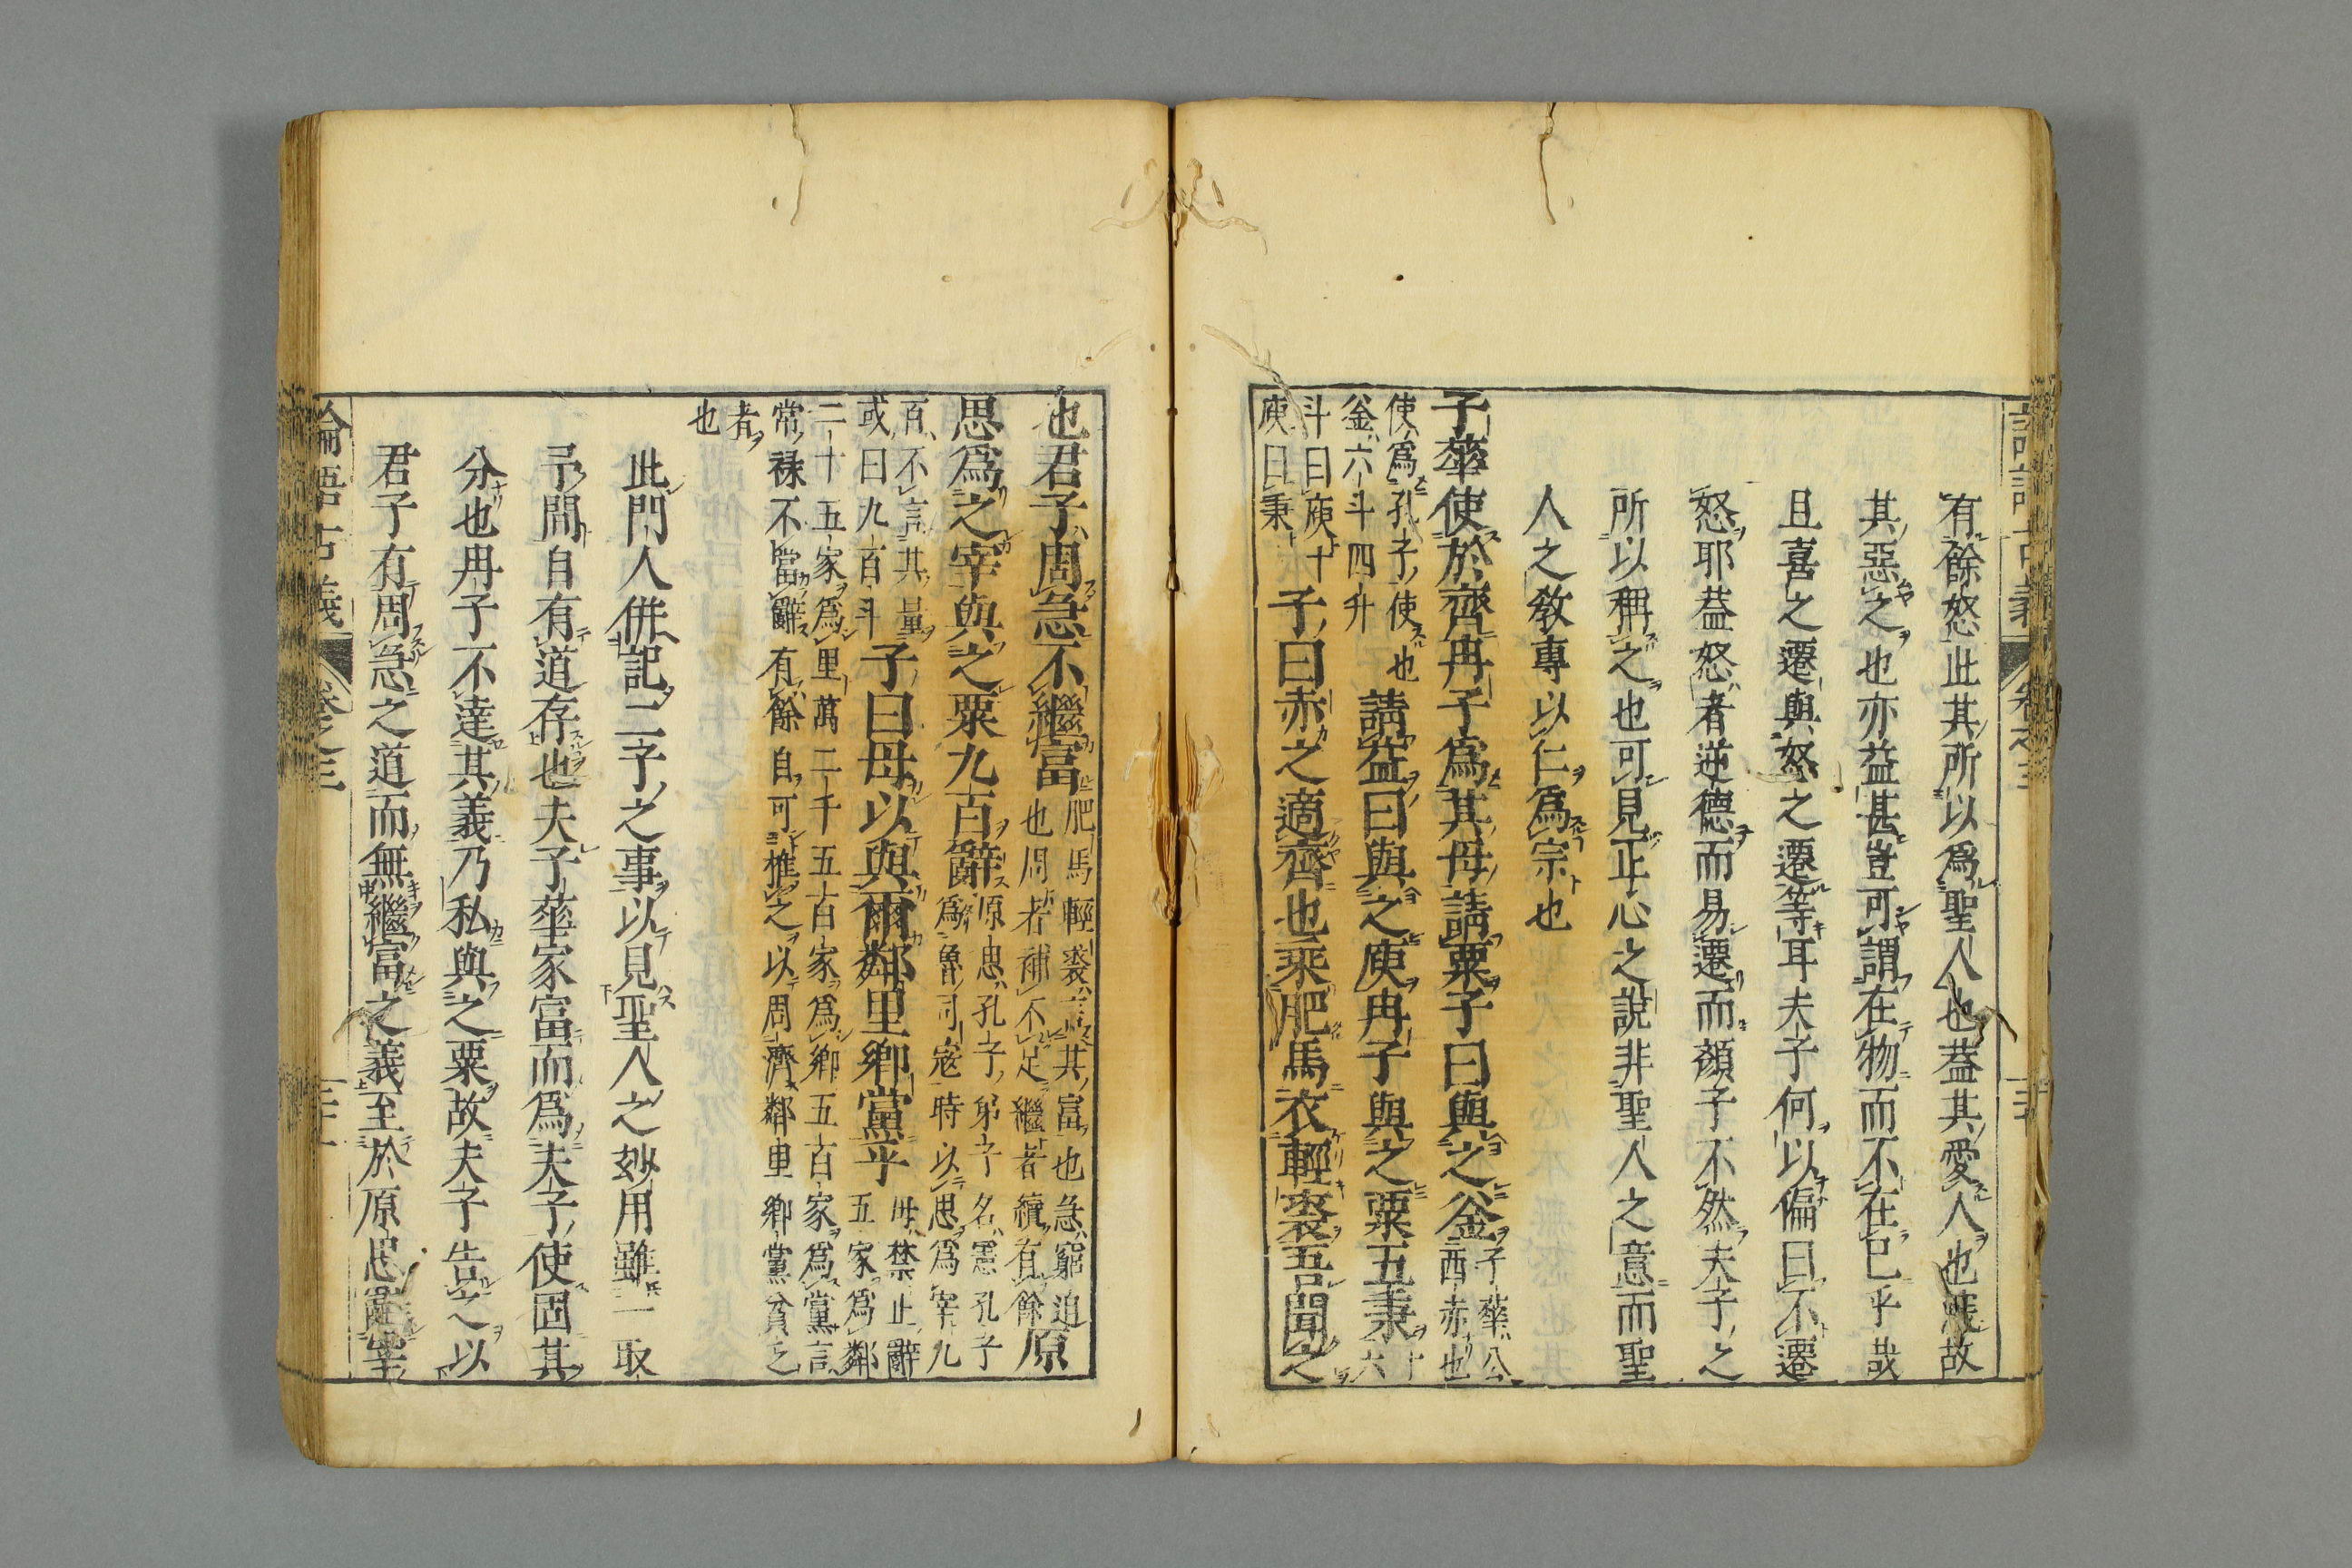 有餘怒此其所以爲聖人也葢其愛人也深故
其惡之也亦益甚豈可謂在物而不在已乎哉
且喜之遷與怒之遷等耳夫子何以偏曰不遷
怒耶葢怒者逆德而易遷而顏子不然夫子之
所以稱之也可見正心之說非聖人之意而聖
人之敎專以仁爲宗也
子華使於齊冉子爲其母請粟子曰與之釜
子華公
西赤也
使爲孔子使也
釜六斗四升
請益曰與之庾冉子與之粟五秉
十六
斗曰庾十
庾曰秉
子曰赤之適齊也乘肥馬衣輕裘吾聞之
也君子周急不繼富
肥馬輕裘言其富也急窮迫
也周者補不足繼者續有餘
原
思爲之宰與之粟九百辭
原思孔子弟子名憲孔子
爲魯司寇時以思爲宰九
百不言其量
或曰九百斗
子曰毋以與爾鄰里鄕黨乎
毋禁止辭
五家爲鄰
二十五家爲里萬二千五百家爲鄕五百家爲黨言
常祿不當辭有餘自可推之以周濟鄰里鄕黨貧乏
者
也
此門人併記二子之事以見聖人之妙用雖一取
予間自有道存也夫子華家富而爲夫子使固其
分也冉子不達其義乃私與之粟故夫子告之以
君子有周急之道而無繼富之義至於原思辭宰
論語古義
卷之三